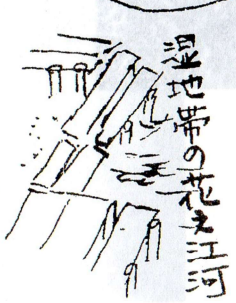 湿地帯の花之江河